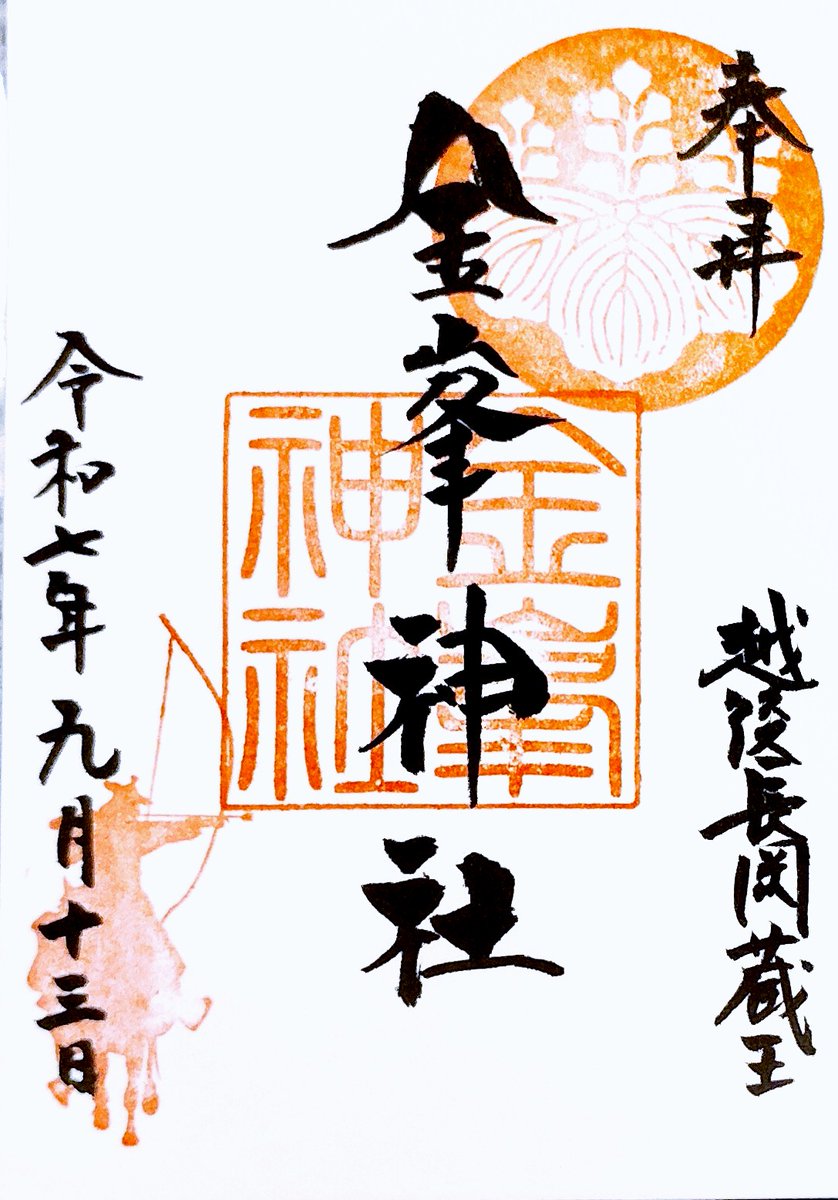 奉拝
越後長岡蔵王
金峯神社
金峯
神社
令和七年九月十三日